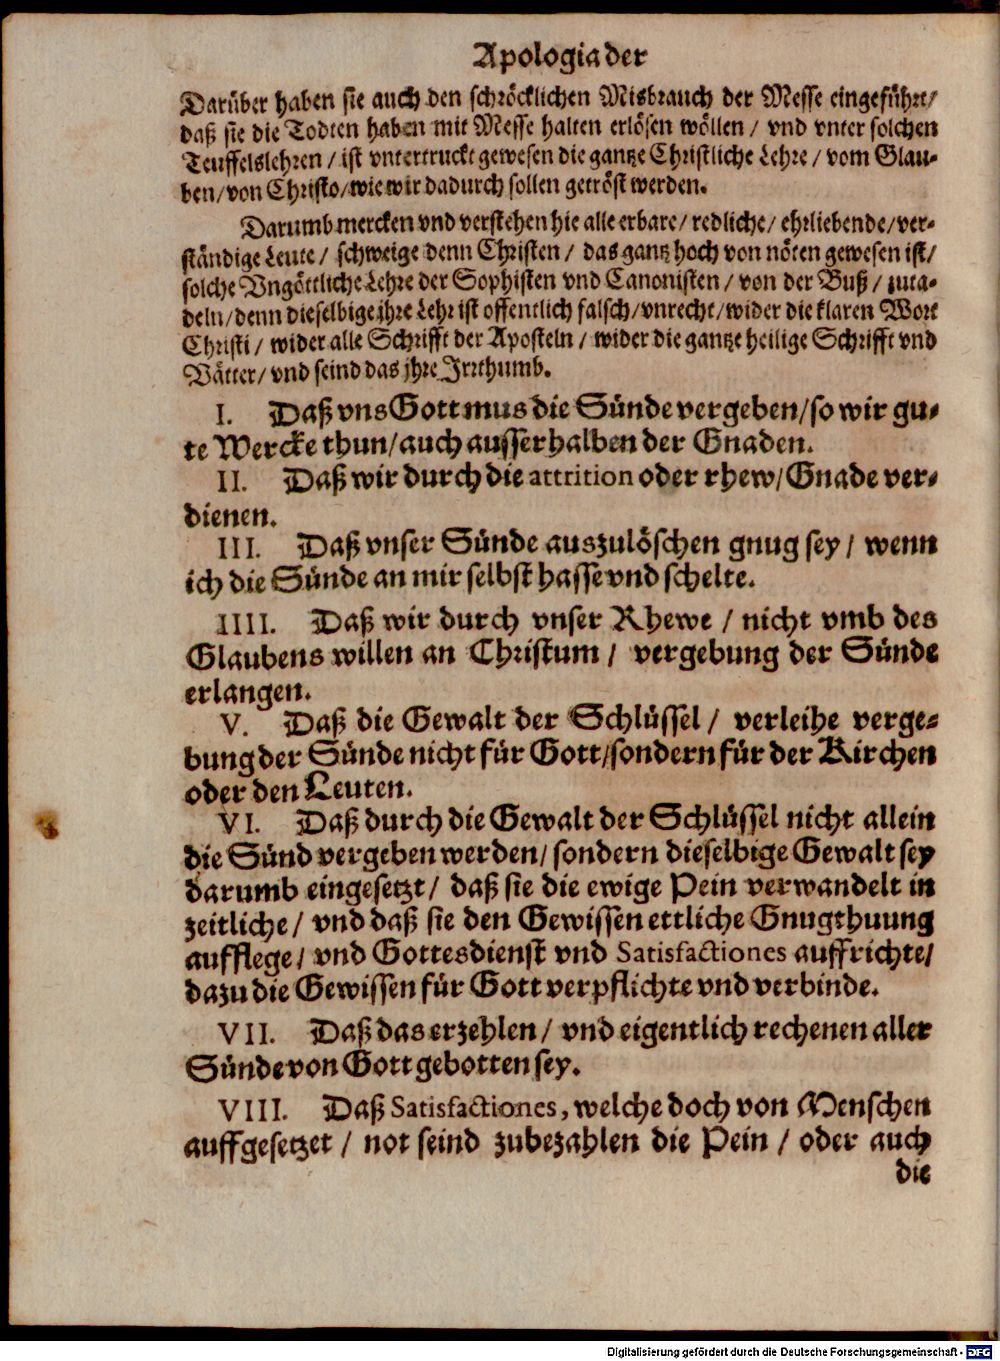 Apologia der
Darüber haben sie auch den schröcklichen Misbrauch der Messe eingeführt/
daß sie die Todten haben mit Messe halten erlösen wöllen / vnd vnter solchen
Teuffelslehren / ist vntertruckt gewesen die gantze Christliche Lehre / vom Glau-
ben/von Christo/wie wir dadurch sollen getröst werden.
Darumb mercken vnd verstehen hie alle erbare/ redliche/ ehrliebende/ver-
ständige Leute / schweige denn Christen / das gantz hoch von nöten gewesen ist/
solche Vngöttliche Lehre der Sophisten vnd Canonisten / von der Buß / zuta-
deln/denn dieselbige jhre Lehr ist offentlich falsch/vnrecht/wider die klaren Wort
Christi / wider alle Schrifft der Aposteln / wider die gantze heilige Schrifft vnd
Vätter/ vnd seind das jhre Irrthumb.
I. Daß vns Gott mus die Sünde vergeben/so wir gu-
te Wercke thun/auch ausserhalben der Gnaden.
II. Daß wir durch die attrition oder rhew/Gnade ver-
dienen.
III. Daß vnser Sünde auszulöschen gnug sey / wenn
ich die Sünde an mir selbst hasse vnd schelte.
IIII. Daß wir durch vnser Rhewe / nicht vmb des
Glaubens willen an Christum / vergebung der Sünde
erlangen.
V. Daß die Gewalt der Schlüssel / verleihe verge-
bung der Sünde nicht für Gott/sondern für der Kirchen
oder den Leuten.
VI. Daß durch die Gewalt der Schlüssel nicht allein
die Sünd vergeben werden/ sondern dieselbige Gewalt sey
darumb eingesetzt / daß sie die ewige Pein verwandelt in
zeitliche / vnd daß sie den Gewissen ettliche Gnugthuung
aufflege/ vnd Gottesdienst vnd Satisfactiones auffrichte/
dazu die Gewissen für Gott verpflichte vnd verbinde.
VII. Daß das erzehlen / vnd eigentlich rechenen aller
Sünde von Gott gebotten sey.
VIII. Daß Satisfactiones, welche doch von Menschen
auffgesetzet / not seind zubezahlen die Pein / oder auch
die
Digitalisierung gefördert durch die Deutsche Forschungsgemeinschaft - DFG